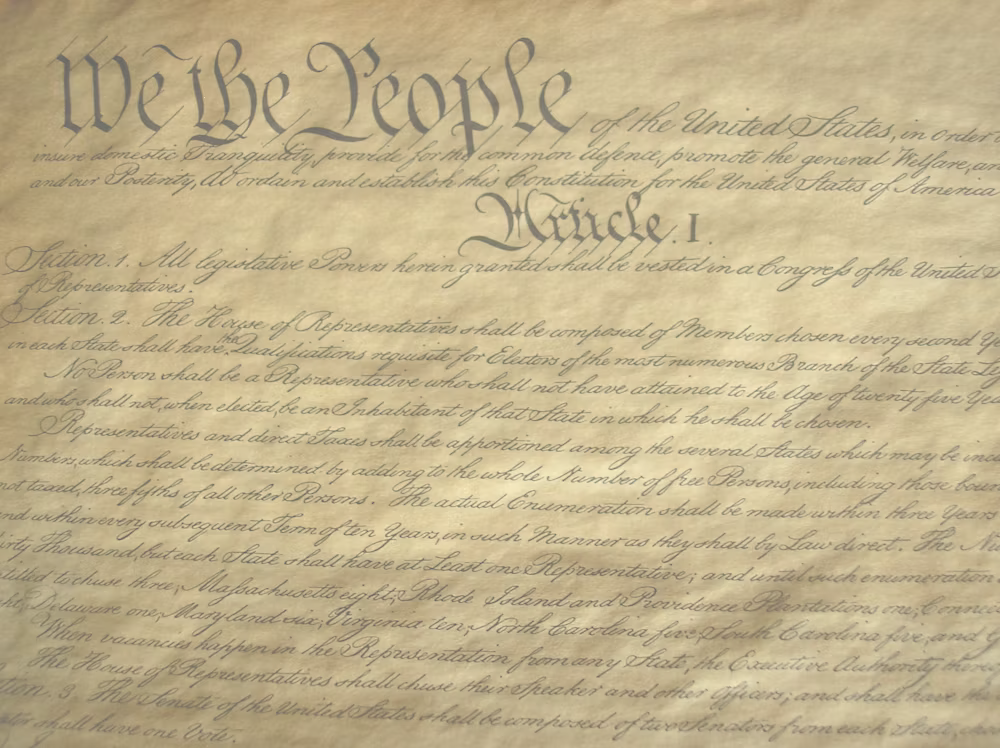 We the People of the United States, in order
insure domestic Tranquility, provide for the common defence, promote the general Welfare, an
and our Posterity, do ordain and establish this Constitution for the United States of America
Article. I.
Section. 1. All legislative Powers herein granted shall be vested in a Congress of the United S
of Representatives.
Section. 2. The House of Representatives shall be composed of Members chosen every second Ye
in each State shall have the Qualifications requisite for Electors of the most numerous Branch of the State Leg
No Person shall be a Representative who shall not have attained to the Age of twenty five Yea
and who shall not, when elected, be an Inhabitant of that State in which he shall be chosen.
Representatives and direct Taxes shall be apportioned among the several States which may be inclu
Numbers, which shall be determined by adding to the whole Number of free Persons, including those boun
not taxed, three fifths of all other Persons. The actual Enumeration shall be made within three Years
and within every subsequent Term of ten Years, in such Manner as they shall by Law direct. The Nu
irty Thousand, but each State shall have at Least one Representative; and until such enumeration
titled to chuse three, Massachusetts eight, Rhode Island and Providence Plantations one, Connec
ght, Delaware one, Maryland six, Virginia ten, North Carolina five, South Carolina five, and G
When vacancies happen in the Representation from any State, the Executive Authority there
The House of Representatives shall chuse their Speaker and other Officers; and shall have the
tion. 3. The Senate of the United States shall be composed of two Senators from each State, chos
ator shall have one Vote.